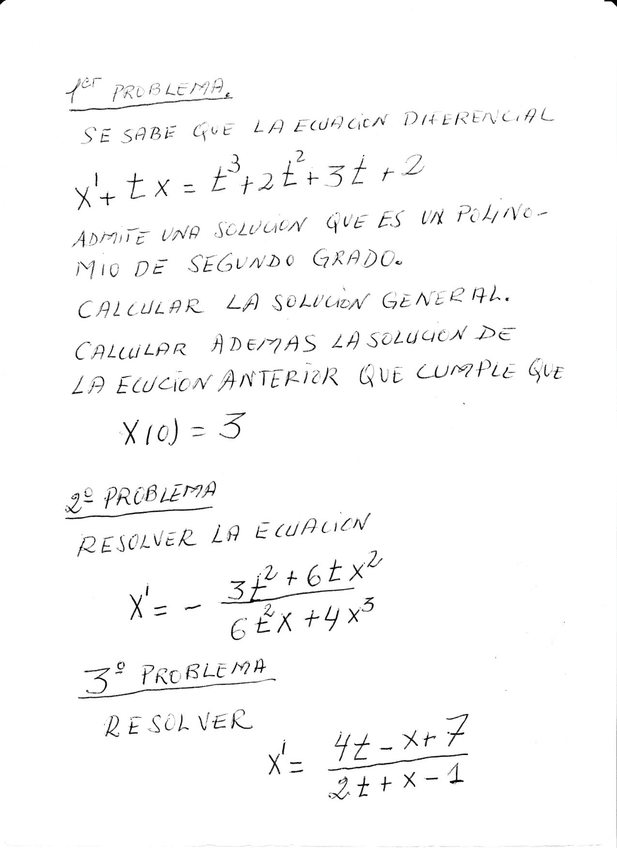 1er PROBLEMA.
SE SABE QUE LA ECUACION DIFERENCIAL
x' + t x = t³ + 2t² + 3t + 2
ADMITE UNA SOLUCION QUE ES UN POLINO-
MIO DE SEGUNDO GRADO.
CALCULAR LA SOLUCION GENERAL.
CALCULAR ADEMAS LA SOLUCION DE
LA ECUCION ANTERIOR QUE CUMPLE QUE
X(0) = 3
2º PROBLEMA
RESOLVER LA ECUACION
x' = - (3t² + 6tx²) / (6t²x + 4x³)
3º PROBLEMA
RESOLVER
x' = (4t - x + 7) / (2t + x - 1)